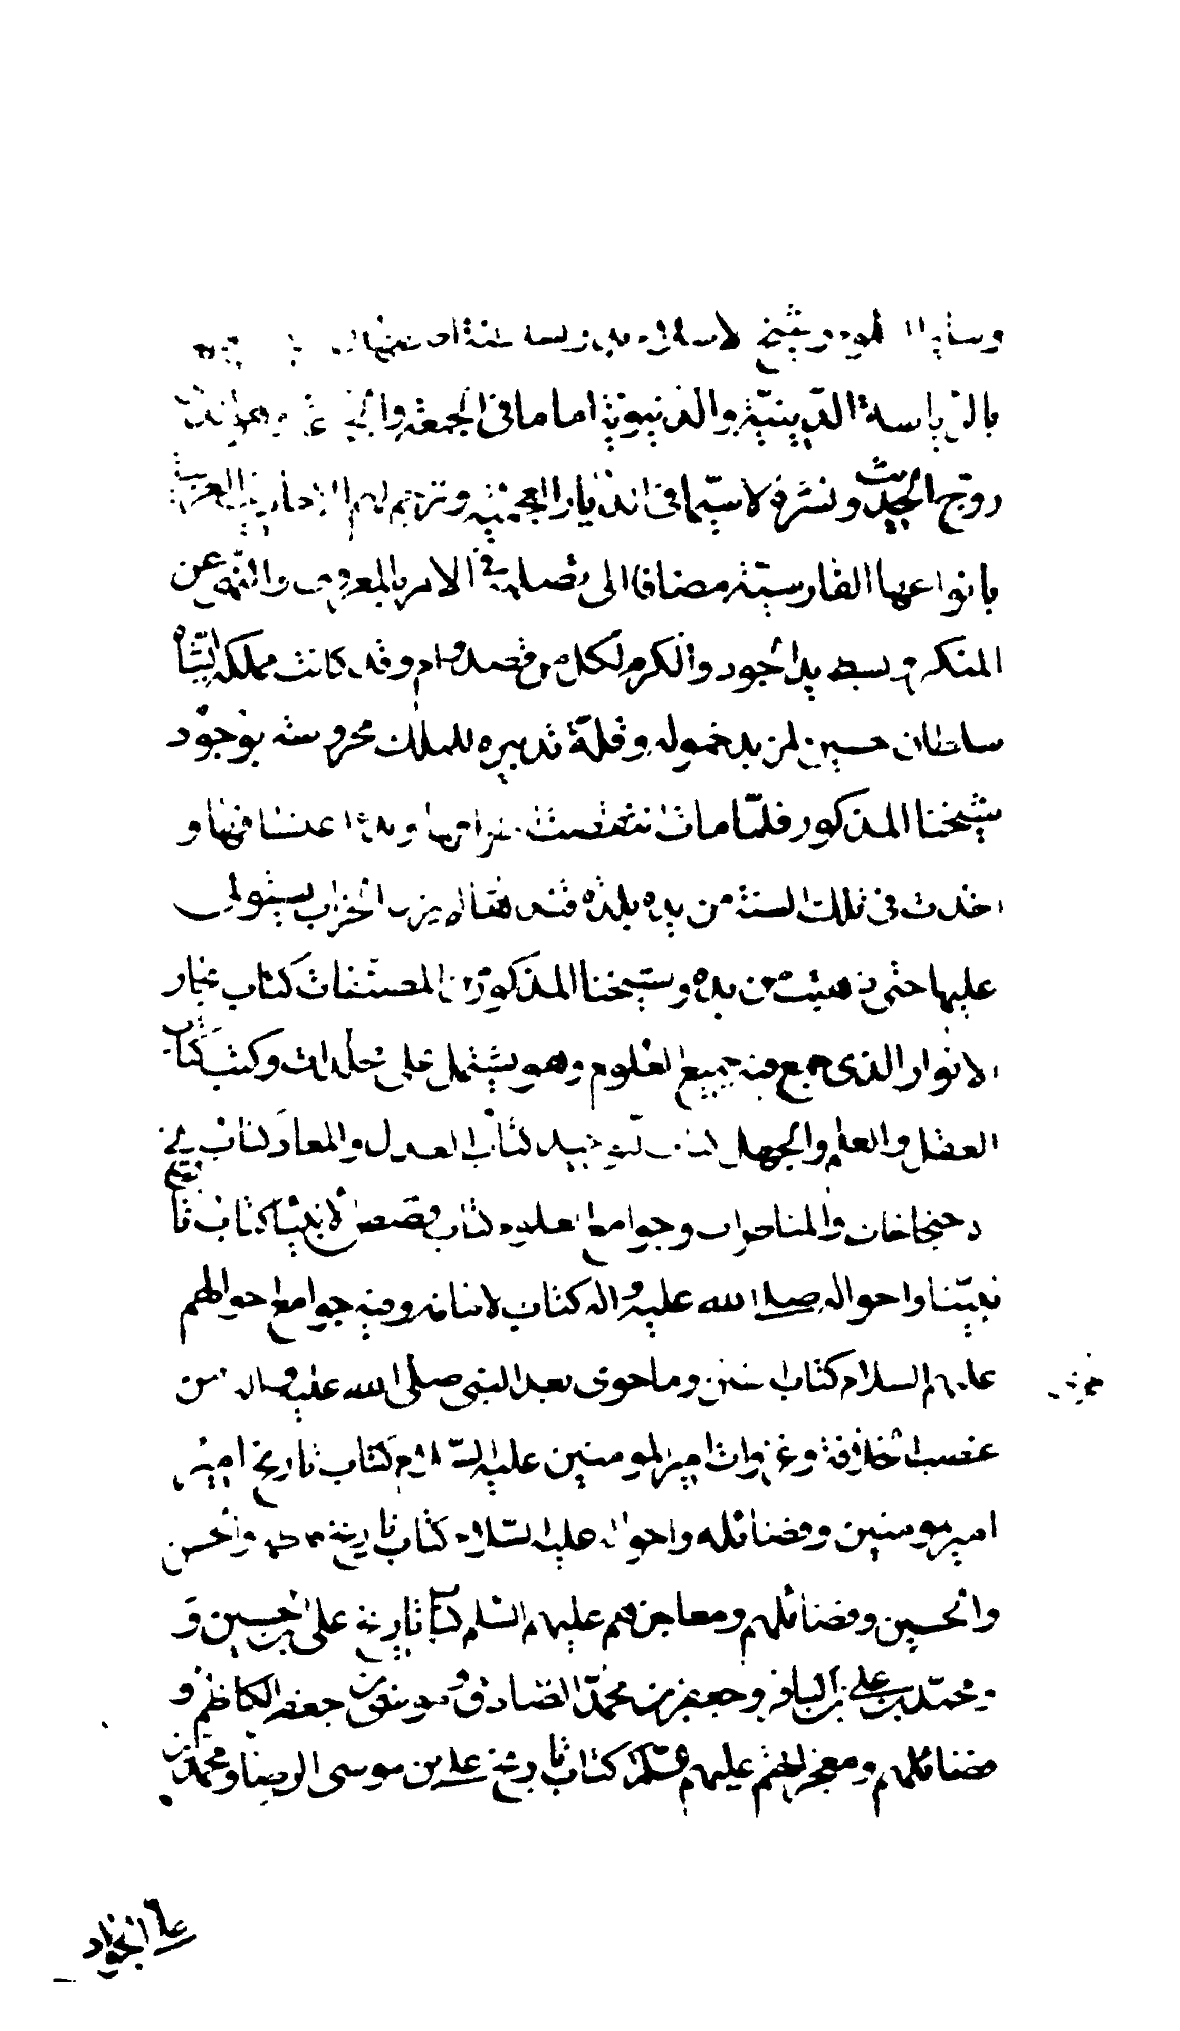 وشيخ الاسلام
بالرياسة الدينية والدنيوية اماما فى الجمعة و
روج الحديث ونشره لاسيما فى الديار العجمية وترجم لهم الاحاديث العربية
بانواعها الفارسية مضافا الى تصلبه فى الامر بالمعروف والنهى عن
المنكر وبسط يد الجود والكرم لكل من قصد وام وقد كانت مملكة الشاه
سلطان حسين لمزيد خموله وقلة تدبيره للملك محروسة بوجود
شيخنا المذكور فلما مات انتقصت اطرافها وبدا اعتسافها و
اخذت فى تلك السنة من يده بلدة قندهار ولم يزل الخراب يستولى
عليها حتى ذهبت من يده وشيخنا المذكور من المصنفات كتاب بحار
الانوار الذى جمع فيه جميع العلوم وهو يشتمل على مجلدات وكتب كتاب
العقل والعلم والجهل كتاب التوحيد كتاب العدل والمعاد كتاب
الاحتجاجات والمناظرات وجوامع العلوم كتاب قصص الانبياء كتاب تاريخ
نبينا واحواله صلى الله عليه واله كتاب الامامة وفيه جوامع احوالهم
عليهم السلام كتاب الفتن وما جرى بعد النبى صلى الله عليه واله من
غصب الخلافة وغزوات امير المومنين عليه السلام كتاب تاريخ امير
امير مومنين وفضائله واحواله عليه السلام كتاب تاريخ فاطمة والحسن
والحسين وفضائلهم ومعاجزهم عليهم السلم كتاب تاريخ على بن الحسين و
ومحمد بن على الباقر وجعفر بن محمد الصادق وموسى بن جعفر الكاظم و
فضائلهم ومعجزاتهم عليهم السلم كتاب تاريخ على بن موسى الرضا ومحمد بن
على الجواد